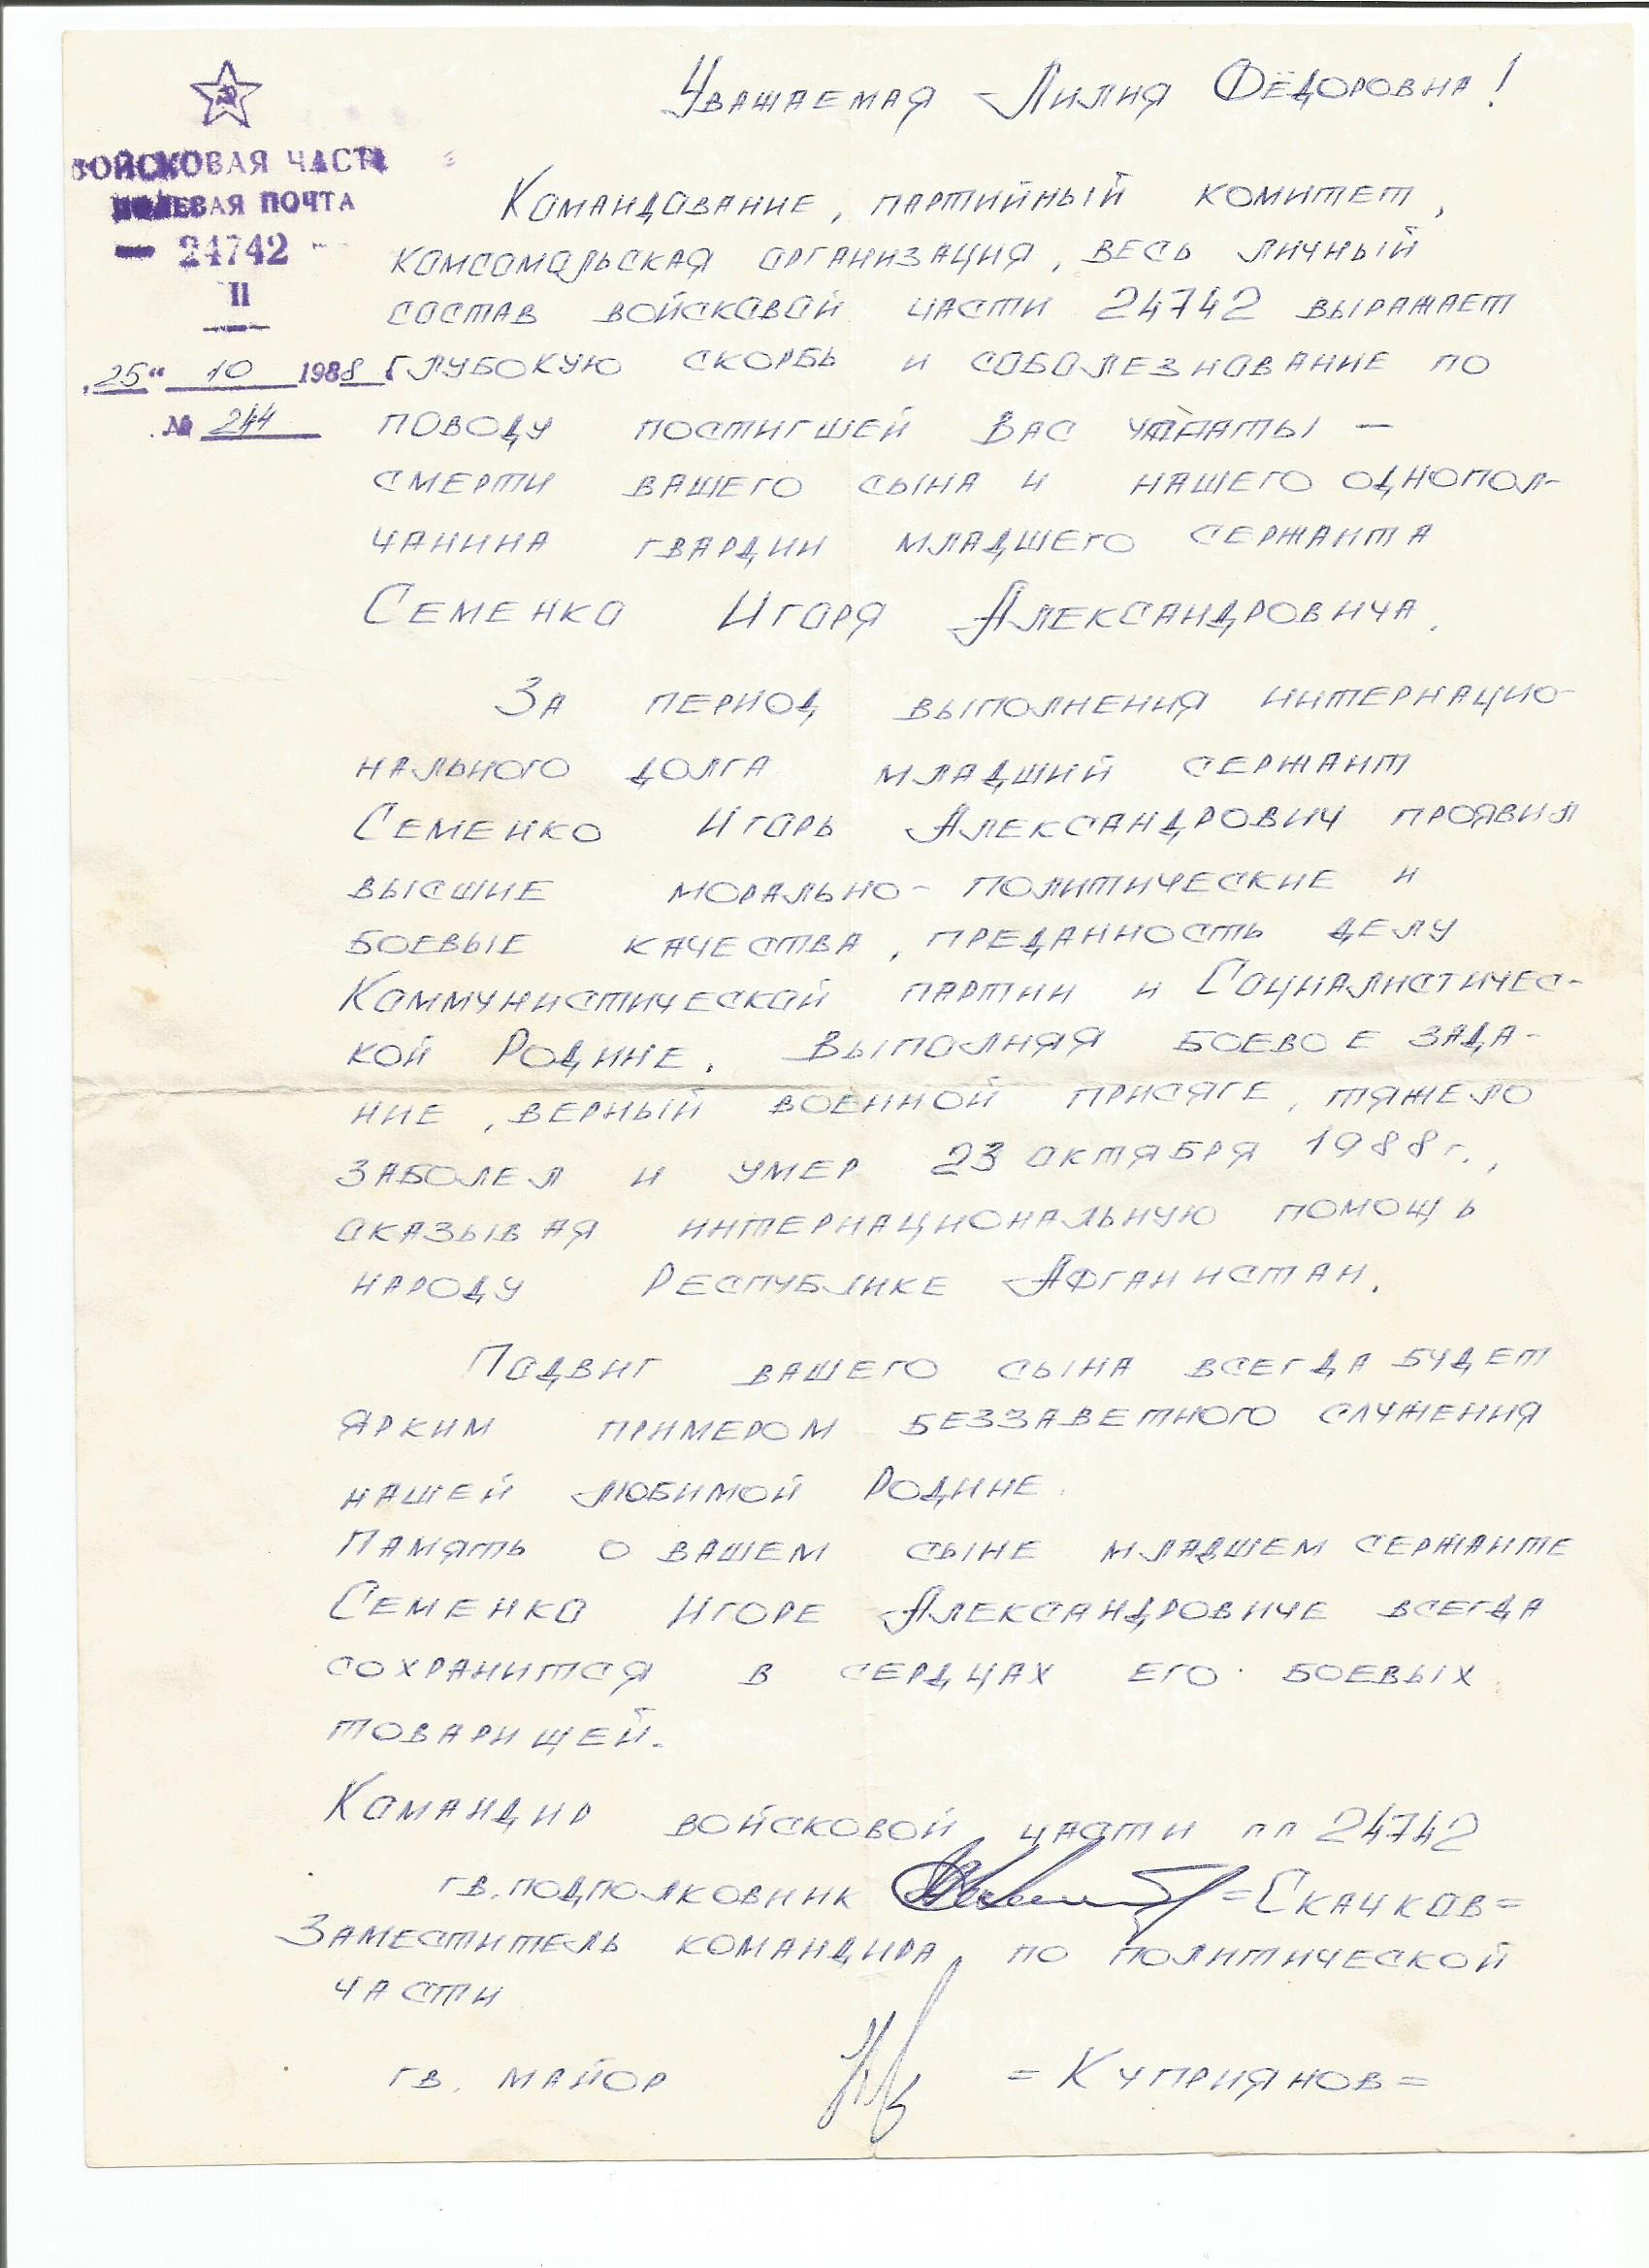 Уважаемая Лилия Фёдоровна!
ВОЙСКОВАЯ ЧАСТЬ
ПОЛЕВАЯ ПОЧТА
24742
II
„25“ 10 1988 г.
№ 244
Командование, партийный комитет,
комсомольская организация, весь личный
состав войсковой части 24742 выражает
глубокую скорбь и соболезнование по
поводу постигшей Вас утраты —
смерти вашего сына и нашего однопол-
чанина гвардии младшего сержанта
Семенко Игоря Александровича.
За период выполнения интернацио-
нального долга младший сержант
Семенко Игорь Александрович проявил
высшие морально-политические и
боевые качества, преданность делу
Коммунистической партии и Социалистичес-
кой Родине. Выполняя боевое зада-
ние, верный военной присяге, тяжело
заболел и умер 23 октября 1988 г.,
оказывая интернациональную помощь
народу Республике Афганистан.
Подвиг вашего сына всегда будет
ярким примером беззаветного служения
нашей любимой Родине.
Память о вашем сыне младшем сержанте
Семенко Игоре Александровиче всегда
сохранится в сердцах его боевых
товарищей.
Командир войсковой части пп 24742
гв. подполковник =Скачков=
Заместитель командира по политической
части
гв. майор =Куприянов=